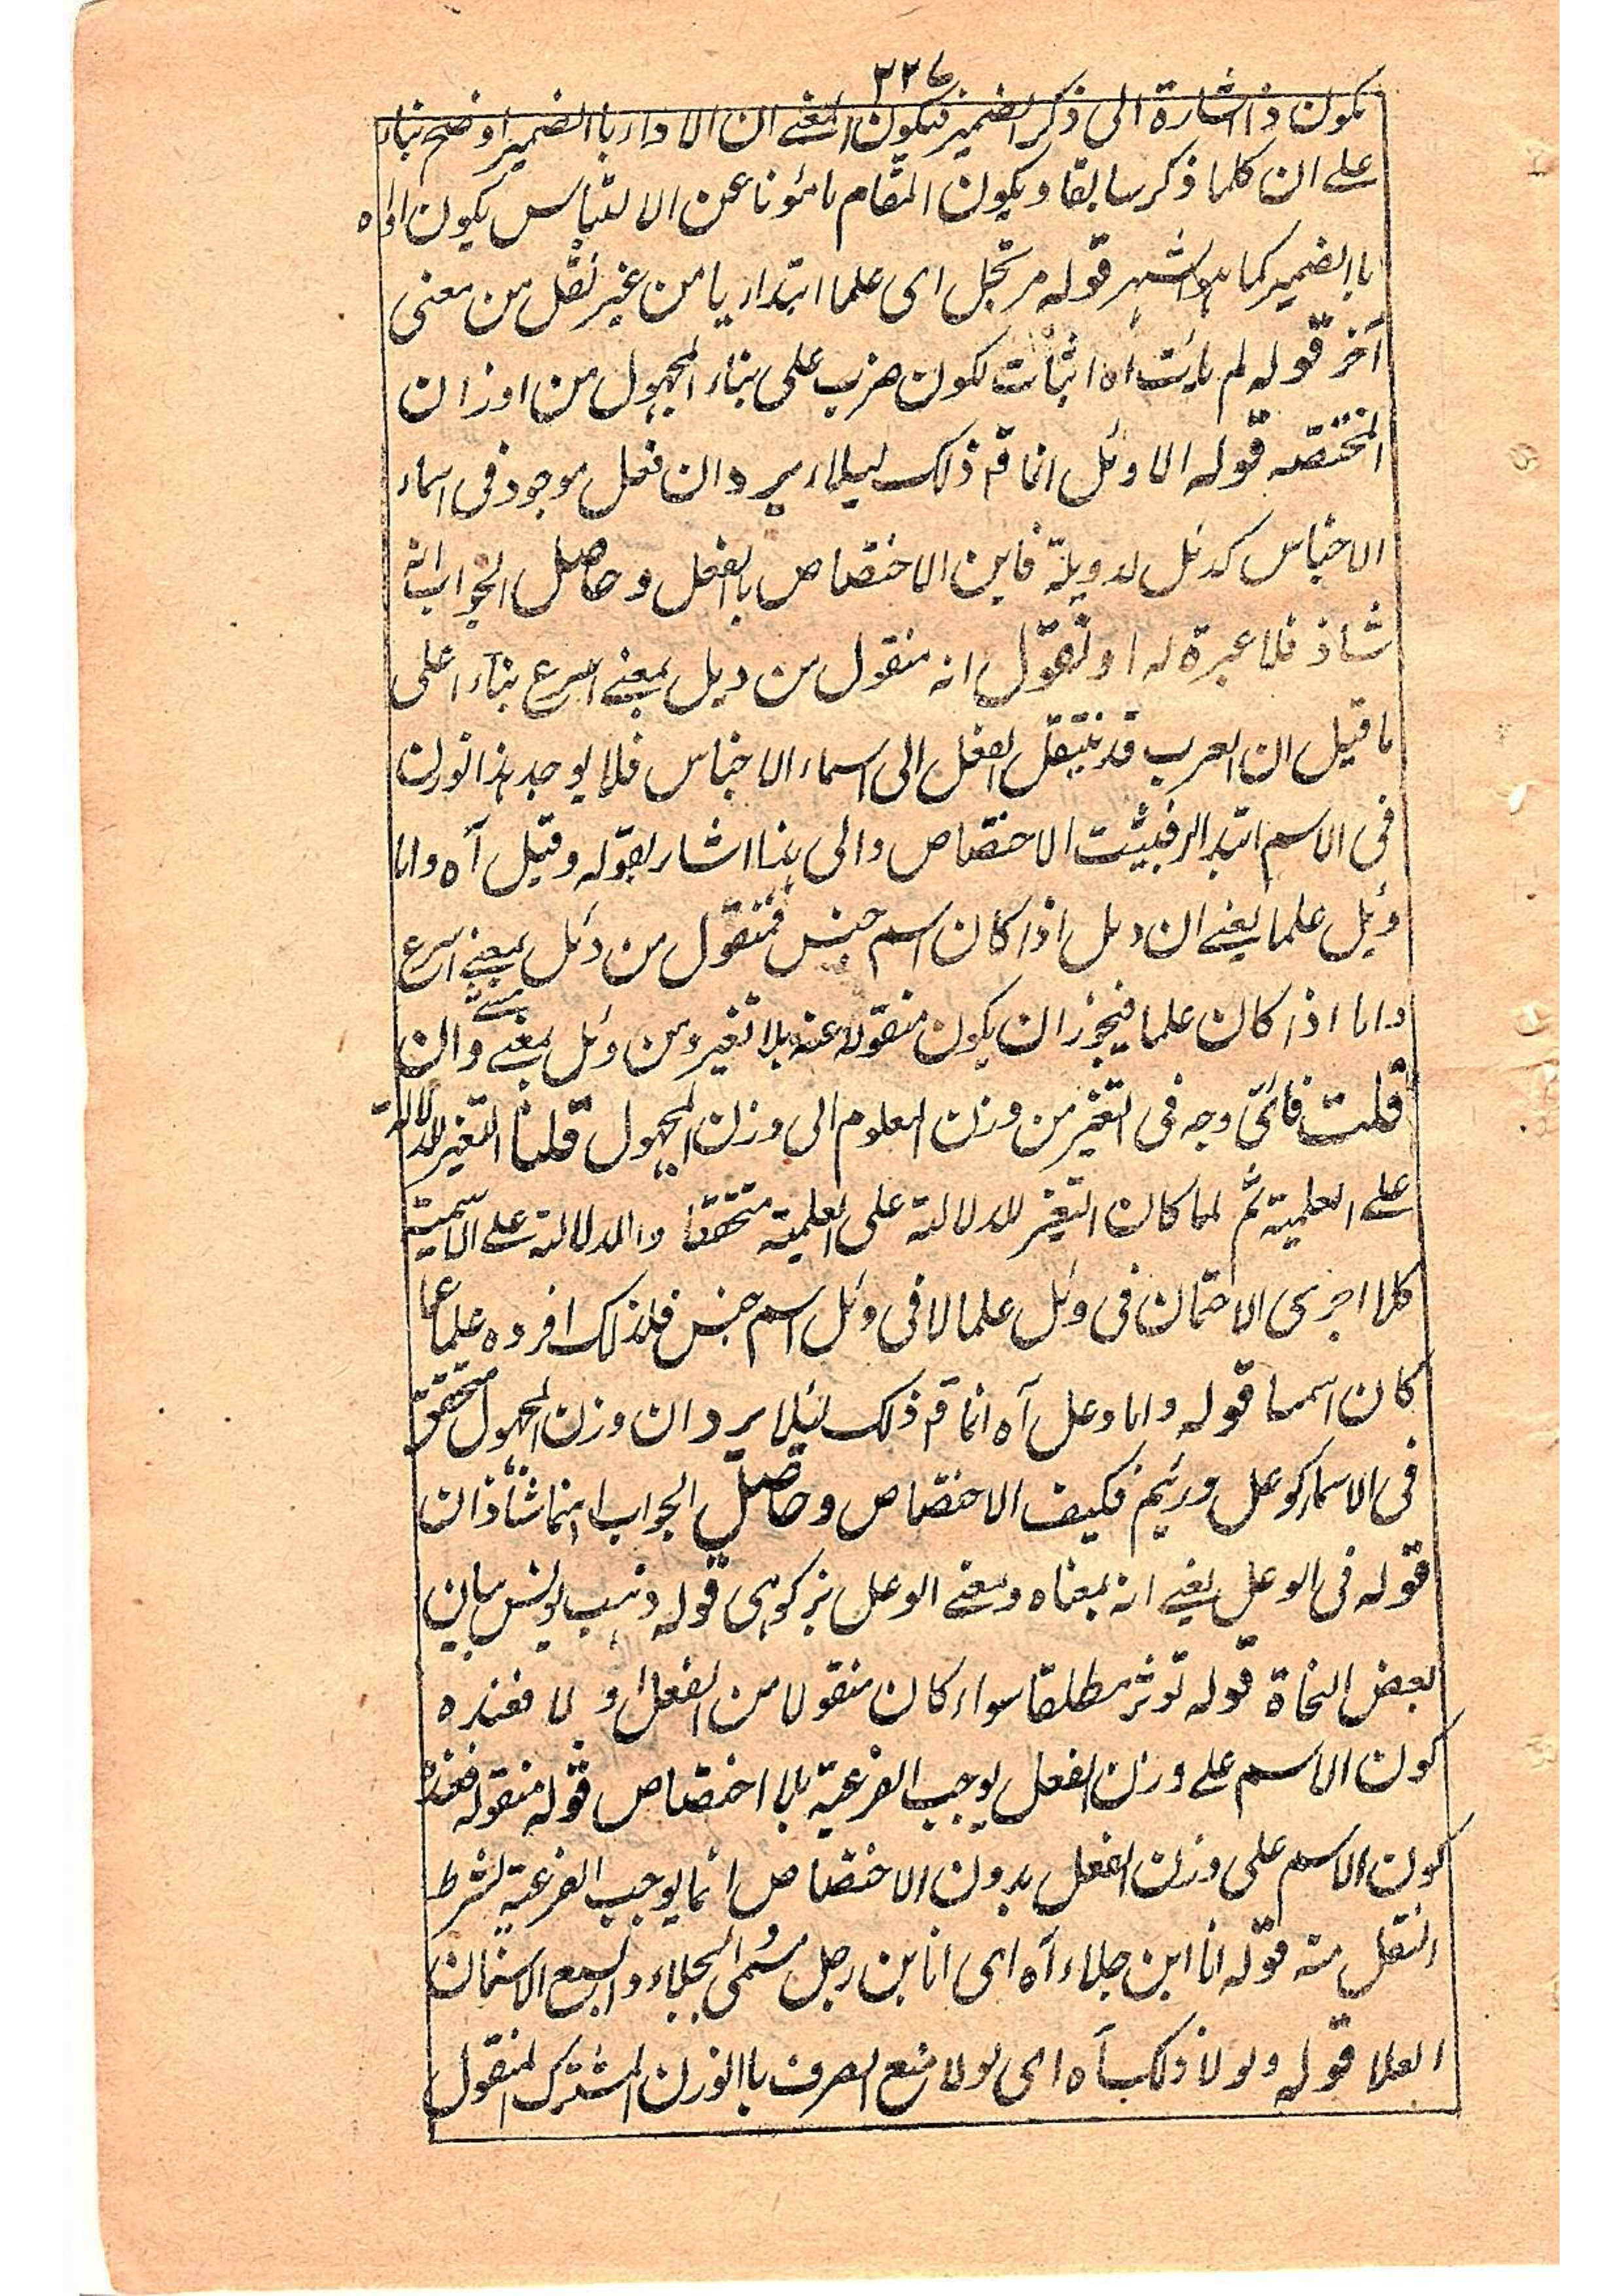 ٢٢٧
يكون ذا اشارة الى ذكر الضمير فيكون المعنے ان الاداء باالضمير اوضح بناء
علے ان كلما ذكر سابقا ويكون المقام مامونا عن الالتباس يكون اداه
باالضمير كما هو اشهر قوله مرتجل اى علما ابتداء يا من غير نقل من معنى
آخر قوله لم يات اه اثبات لكون ضرب على بناء المجهول من اوزان
المختصه قوله الا وئل انما قه ذلك ليلاء يرد ان فعل موجود فى اسماء
الاجناس كدئل لدويبة فاين الاختصاص باالفعل وحاصل الجواب انه
شاذ فلا عبرة له او نقول انه منقول من ديل بمعنے اسرع بناء اعلى
ما قيل ان العرب قد ينتقل الفعل الى اسماء الاجناس فلا يوجد هذا الوزن
فى الاسم ابتداء فيثبت الاختصاص والى هذا اشار بقوله وقيل آه واما
وئل علما يعنے ان دئل اذا كان اسم جنس فمنقول من دئل بمعنے اسرع
واما اذا كان علما فيجوز ان يكون منقوله عنه بلا تغير ومن وئل بمعنے وان
قلت فائى وجه فى التغير من وزن المعلوم الى وزن المجهول قلنا التغير للدلالة
علے العلمية ثم لما كان التغير للدلالة على العلمية متحققا والدلالة علے الاسمية
كلا اجرى الاحتمان فى وئل علما لا فى وئل اسم جنس فلذلك افرده علما عما
كان اسما قوله واما وعل آه انما قه ذلك ليئلا يرد ان وزن المجهول متحقق
فى الاسماء كوعل ورئيم فكيف الاختصاص وحاصل الجواب انهما شاذان
قوله فى الوعل يعنے انه بمعناه ومعنے الوعل بز كوہى قوله ذهب يونس بيان
بعض النحاة قوله توثر مطلقا سواء كان منقولا من الفعل او لا فعنده
كون الاسم علے وزن الفعل يوجب الفرعية بلا اختصاص قوله منقوله فعنده
كون الاسم على وزن الفعل بدون الاختصاص انما يوجب الفرعية لشرط
النقل منه قوله انا ابن جلاء آه اى انا بن رجل مسمى بجلاء و
العلا قوله ولولا ذلك آه اى لولا منع الصرف باالوزن المشترك المنقول